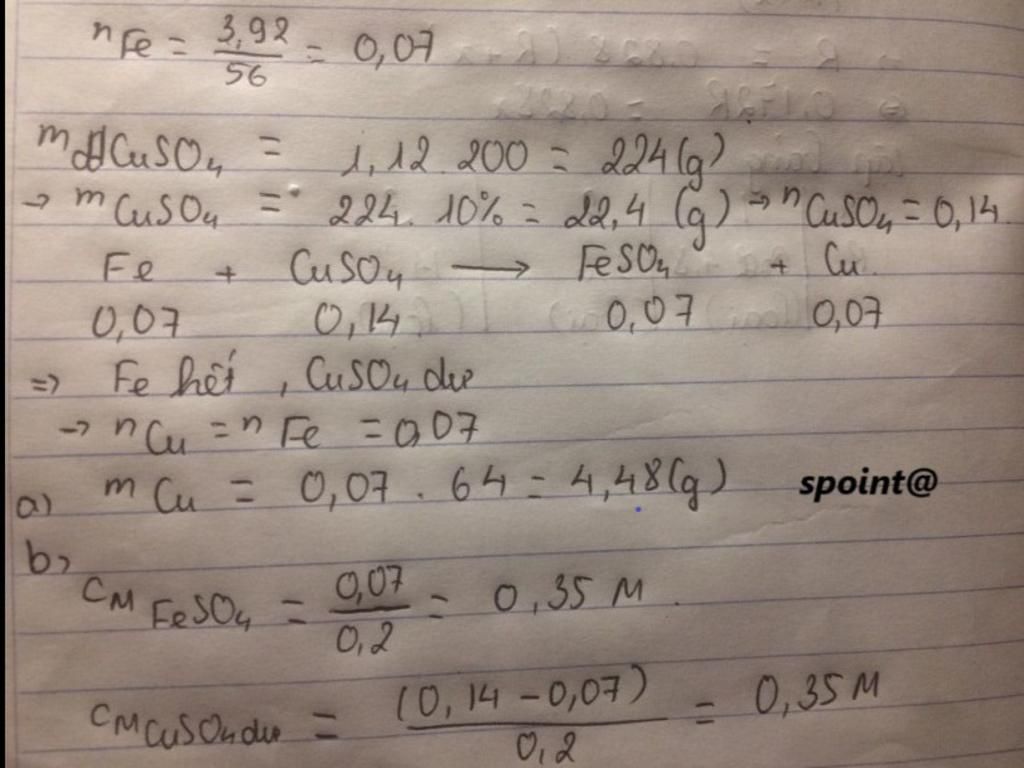 nFe = 3,92/56 = 0,07
mddCuSO4 = 1,12 . 200 = 224(g)
→ mCuSO4 = 224. 10% = 22,4 (g) → nCuSO4 = 0,14
Fe + CuSO4 → FeSO4 + Cu
0,07 0,14 0,07 0,07
=> Fe hết , CuSO4 dư
→ nCu = nFe = 0,07
a) mCu = 0,07 . 64 = 4,48(g) spoint@
b)
CM FeSO4 = 0,07/0,2 = 0,35 M
CM CuSO4 dư = (0,14 - 0,07)/0,2 = 0,35 M